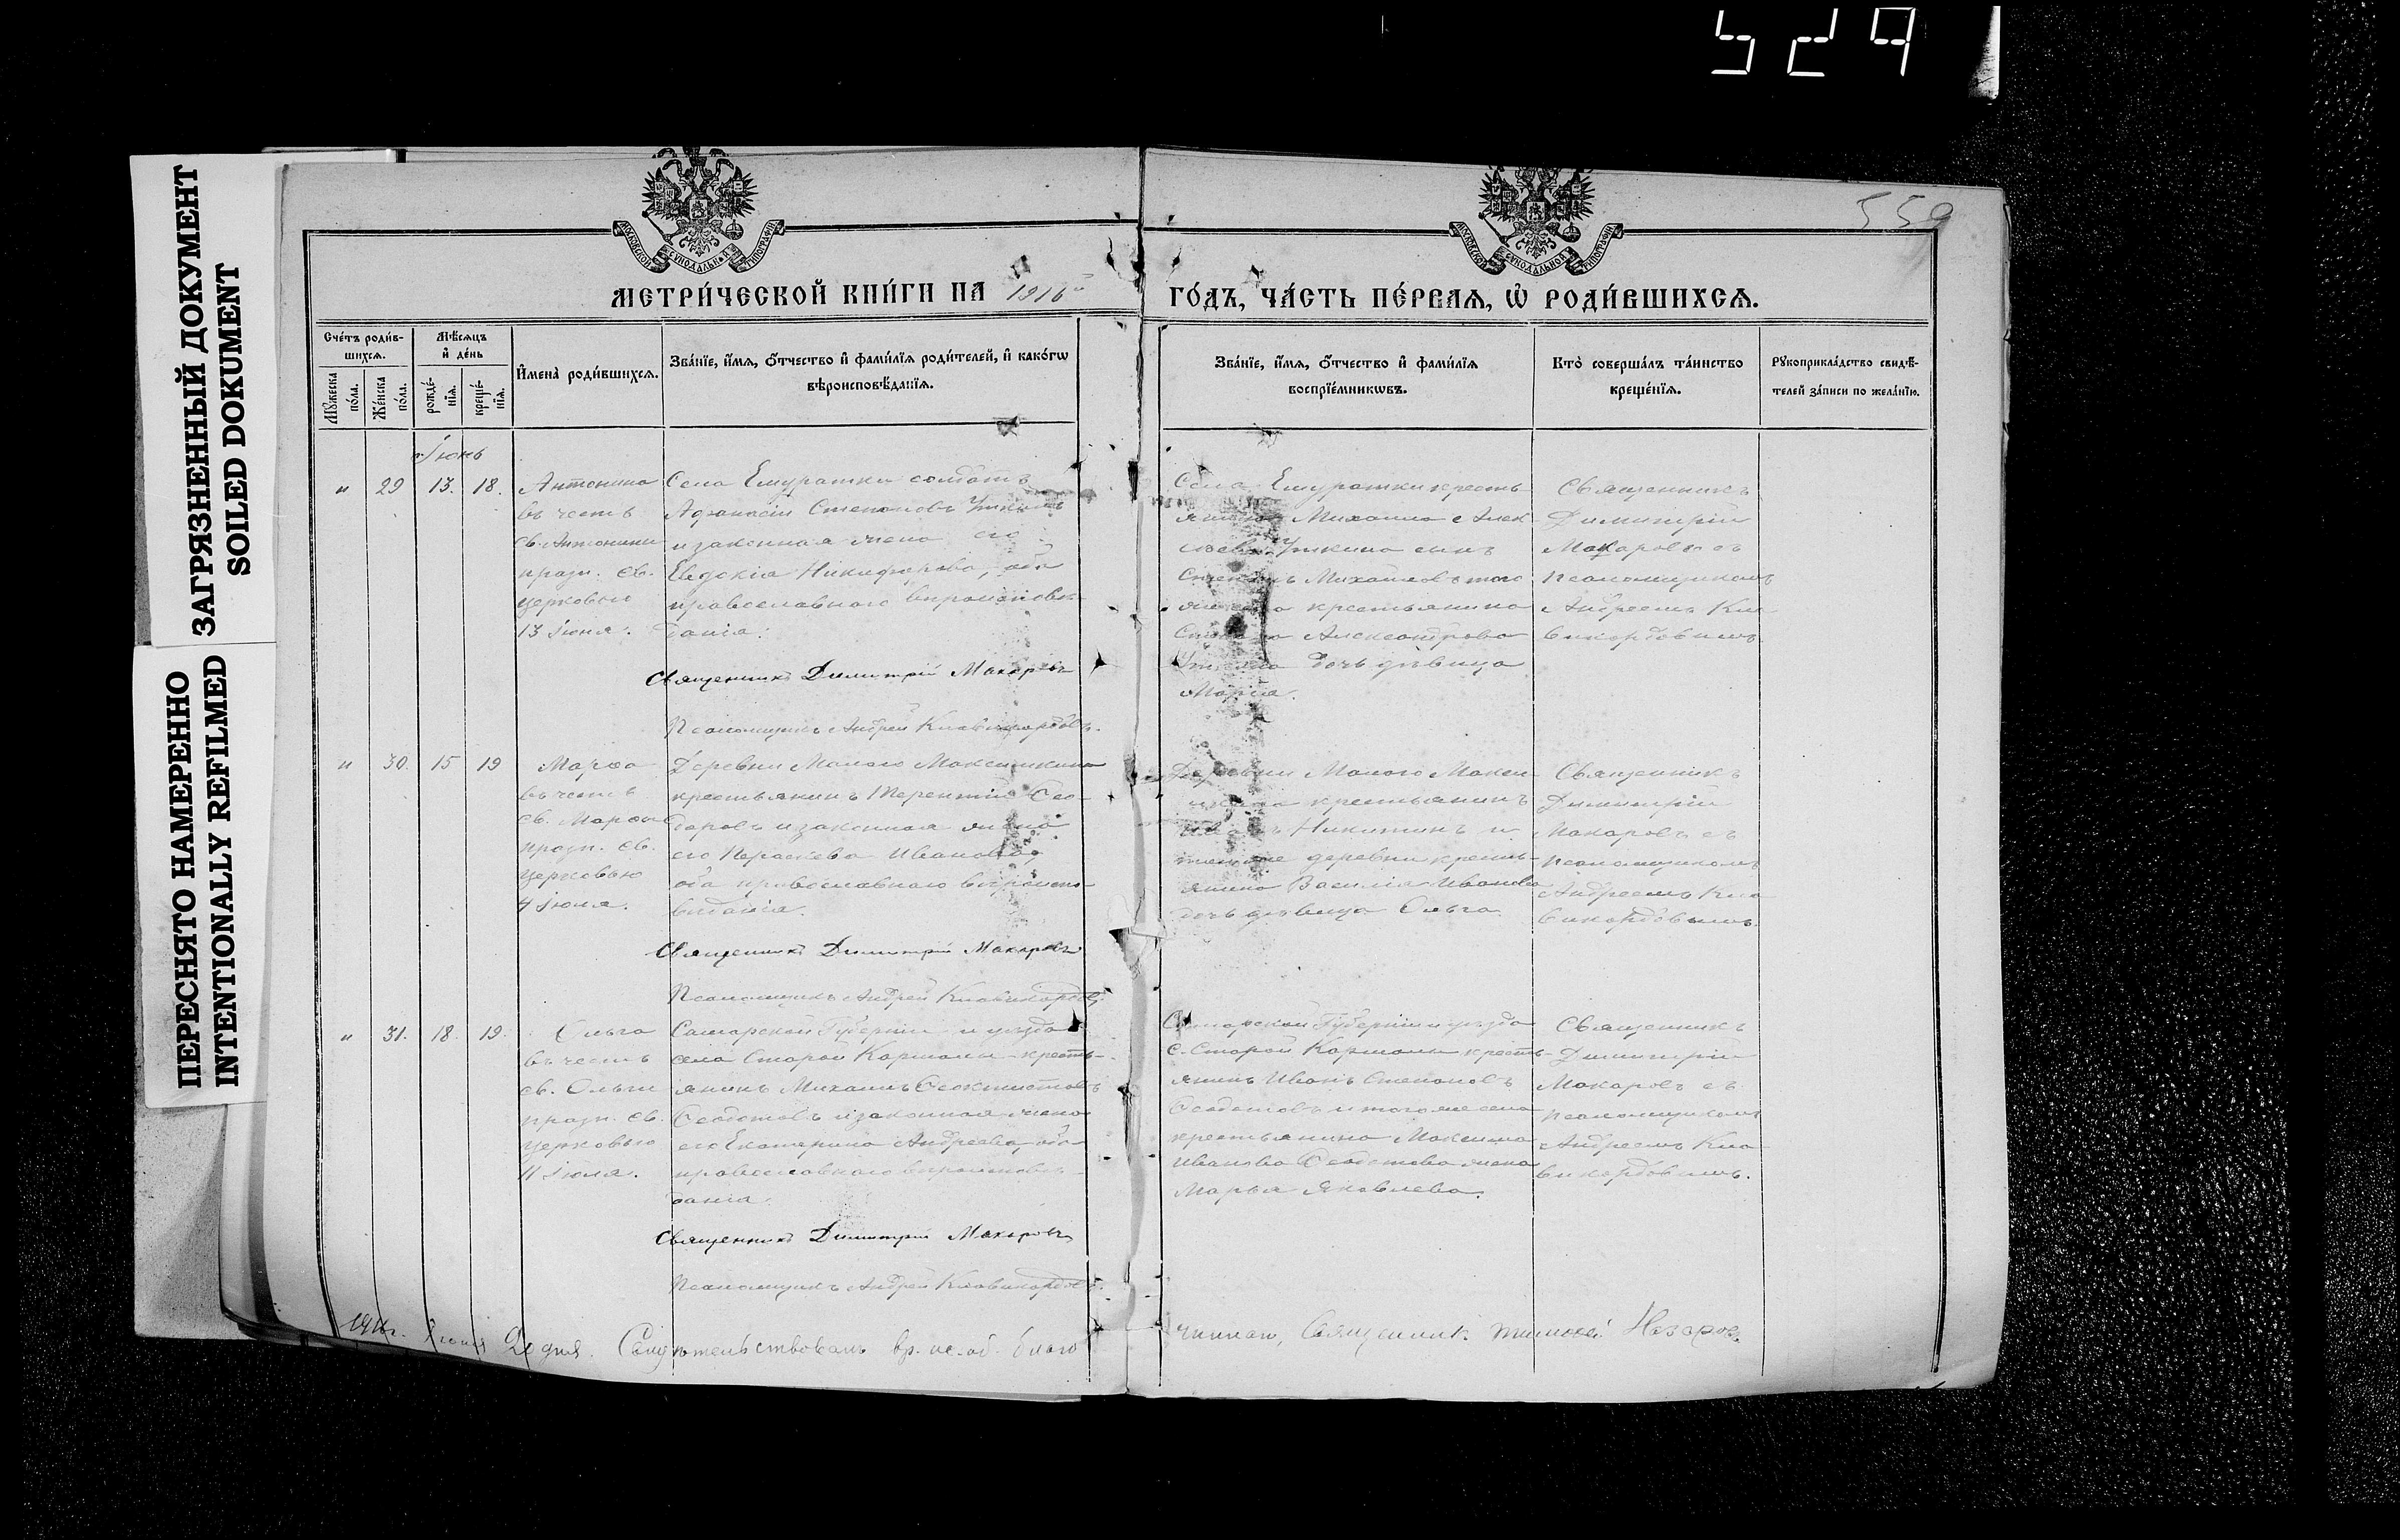 529
559
ЗАГРЯЗНЕННЫЙ ДОКУМЕНТ
SOILED DOKUMENT
ПЕРЕСНЯТО НАМЕРЕННО
INTENTIONALLY REFILMED
МОСКОВСКОЙ СѴНОДАЛЬНОЙ ТИПОГРАФІИ
МОСКОВСКОЙ СѴНОДАЛЬНОЙ ТИПОГРАФІИ
МЕТРИ́ЧЕСКОЙ КНИ́ГИ НА 1916й
ГО́ДЪ, ЧА́СТЬ ПЕ́РВАЯ, Ѡ҆ РОДИ́ВШИХСЯ.
Сче́тъ роди́в-
шихся.
Мѣ́сяцъ
и҆ де́нь
Мꙋ́жеска
по́ла.
Же́нска
по́ла.
рожде́-
нїя.
креще́-
нїя.
И҆мена̀ роди́вшихся.
Зва́нїе, и҆́мя, ѻ҆́тчество и҆ фами́лїя роди́телей, и҆ како́гѡ
вѣроисповѣ́данїя.
Зва́нїе, и҆́мя, ѻ҆́тчество и҆ фами́лїя
воспрїе́мникѡвъ.
Кто̀ соверша́лъ та́инство
креще́нїя.
Рꙋкоприкла́дство свидѣ́-
телей за́писи по жела́нїю.
Іюнь
" 29 13. 18.
Антонина
въ честь
св. Антонины
празн. св.
церковью
13 Іюня.
Села Емуратки солдатъ
Афанасій Степановъ Уткинъ
и законная жена его
Евдокія Никифорова, оба
православнаго вѣроисповѣ-
данія.
Священникъ Димитрій Макаровъ
Псаломщикъ Андрей Клавикордовъ.
Села Емуратки кресть-
Михаила Алек-
Уткина сынъ
Михайловъ того
крестьянина
Александрова
дочь дѣвица
Марія.
Священникъ
Димитрій
Макаровъ съ
псаломщикомъ
Андреемъ Кла-
викордовымъ.
" 30. 15 19
Марѳа
въ честь
св. Марѳы
празн. св.
церковью
4 Іюля.
Деревни Малаго Максимкина
крестьянинъ Терентій Ѳео-
доровъ и законная жена
его Параскева Иванова,
оба православнаго вѣроиспо-
вѣданія.
Священникъ Димитрій Макаровъ
Псаломщикъ Андрей Клавикордовъ.
Деревни Малаго Макси-
крестьянинъ
Никитинъ и
деревни кресть-
янина Василія Иванова
дочь дѣвица Ольга.
Священникъ
Димитрій
Макаровъ съ
псаломщикомъ
Андреемъ Кла-
викордовымъ.
" 31. 18. 19.
Ольга
въ честь
св. Ольги
празн. св.
церковью
11 Іюля.
Самарской Губерніи и уѣзда
села Старой Кармалы кресть-
янинъ Михаилъ Ѳеоктистовъ
Ѳедотовъ и законная жена
его Екатерина Андреева, оба
православнаго вѣроисповѣ-
данія.
Священникъ Димитрій Макаровъ
Псаломщикъ Андрей Клавикордовъ.
Самарской Губерніи и уѣзда
с. Старой Кармалы кресть-
янинъ Иванъ Степановъ
Ѳедотовъ и того же села
крестьянина Максима
Иванова Ѳедотова жена
Марья Яковлева.
Священникъ
Димитрій
Макаровъ съ
псаломщикомъ
Андреемъ Кла-
викордовымъ.
1916 г. Іюля 20 дня. Свидѣтельствовалъ вр. ис. об. благо
чиннаго, Священникъ Тимоѳей Назаровъ